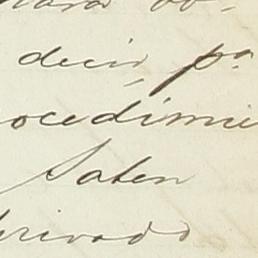 decir, pa
ocedimie
Saten
privado